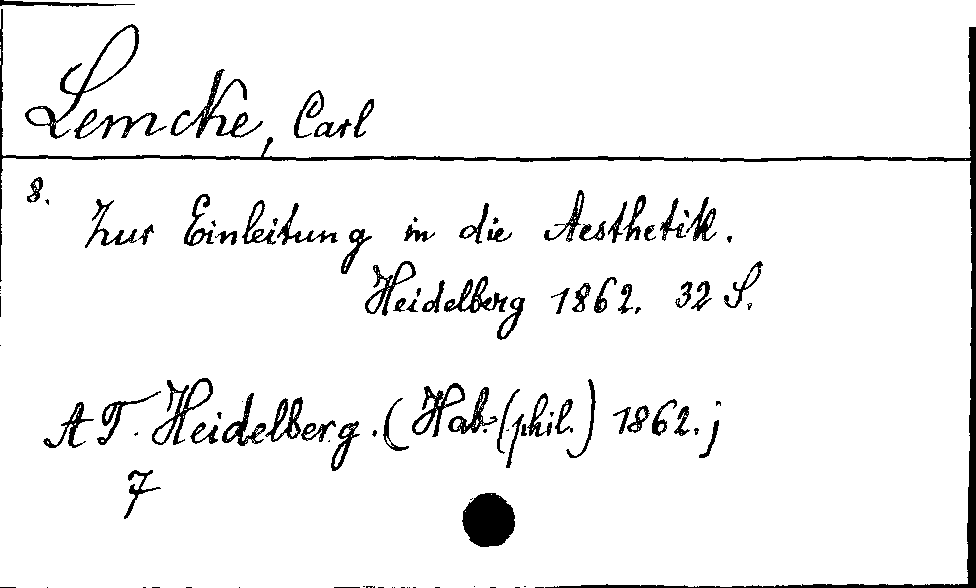 Lemcke, Carl
8.
Zur Einleitung in die Aesthetik.
Heidelberg 1862. 32 S.
AT. Heidelberg. (Hab.-(phil.) 1862.j
7